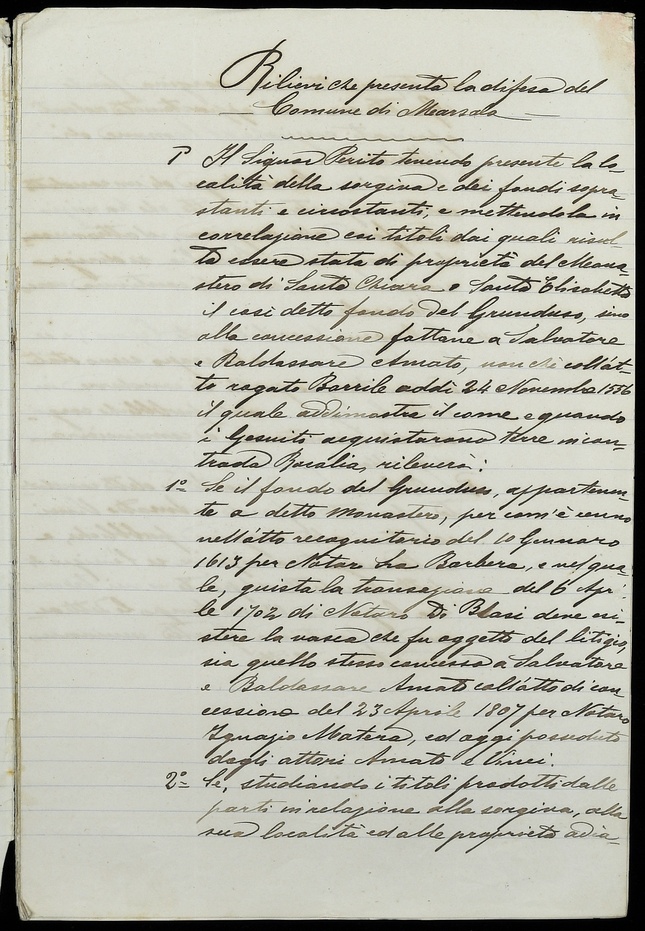 Rilievi che presenta la difesa del
Comune di Marsala
I° Il Signor Perito tenendo presente la lo-
calità della sorgiva e dei fondi sopra-
stanti e circostanti, e mettendola in
correlazione coi titoli dai quali risul-
ta essere stata di proprietà del Mona-
stero di Santa Chiara o Santa Elisabetta
il così detto fondo del Grunduso, sino
alla concessione fattane a Salvatore
e Baldassare Amato, non chè coll'at-
to rogato Barrile addì 24 Novembre 1556
il quale addimostra il come e quando
i Gesuiti acquistarono terre in con-
trada Rocalia, rileverà:
1° Se il fondo del Grunduso, appartenen-
te a detto Monastero, per com'è cenno
nell'atto recognitorio del 10 Gennaro
1613 per Notar La Barbera, e nel qua-
le, giusta la transazione del 6 Apri-
le 1702 di Notaro Di Blasi deve esi-
stere la vasca che fu oggetto del litigio,
sia quello stesso concesso a Salvatore
e Baldassare Amato coll'atto di con-
cessione del 23 Aprile 1807 per Notaro
Ignazio Matera, ed oggi posseduto
dagli attori Amato e Vinci.
2° Se, studiando i titoli prodotti dalle
parti in relazione alla sorgiva, alla
sua località ed alle proprietà adia-